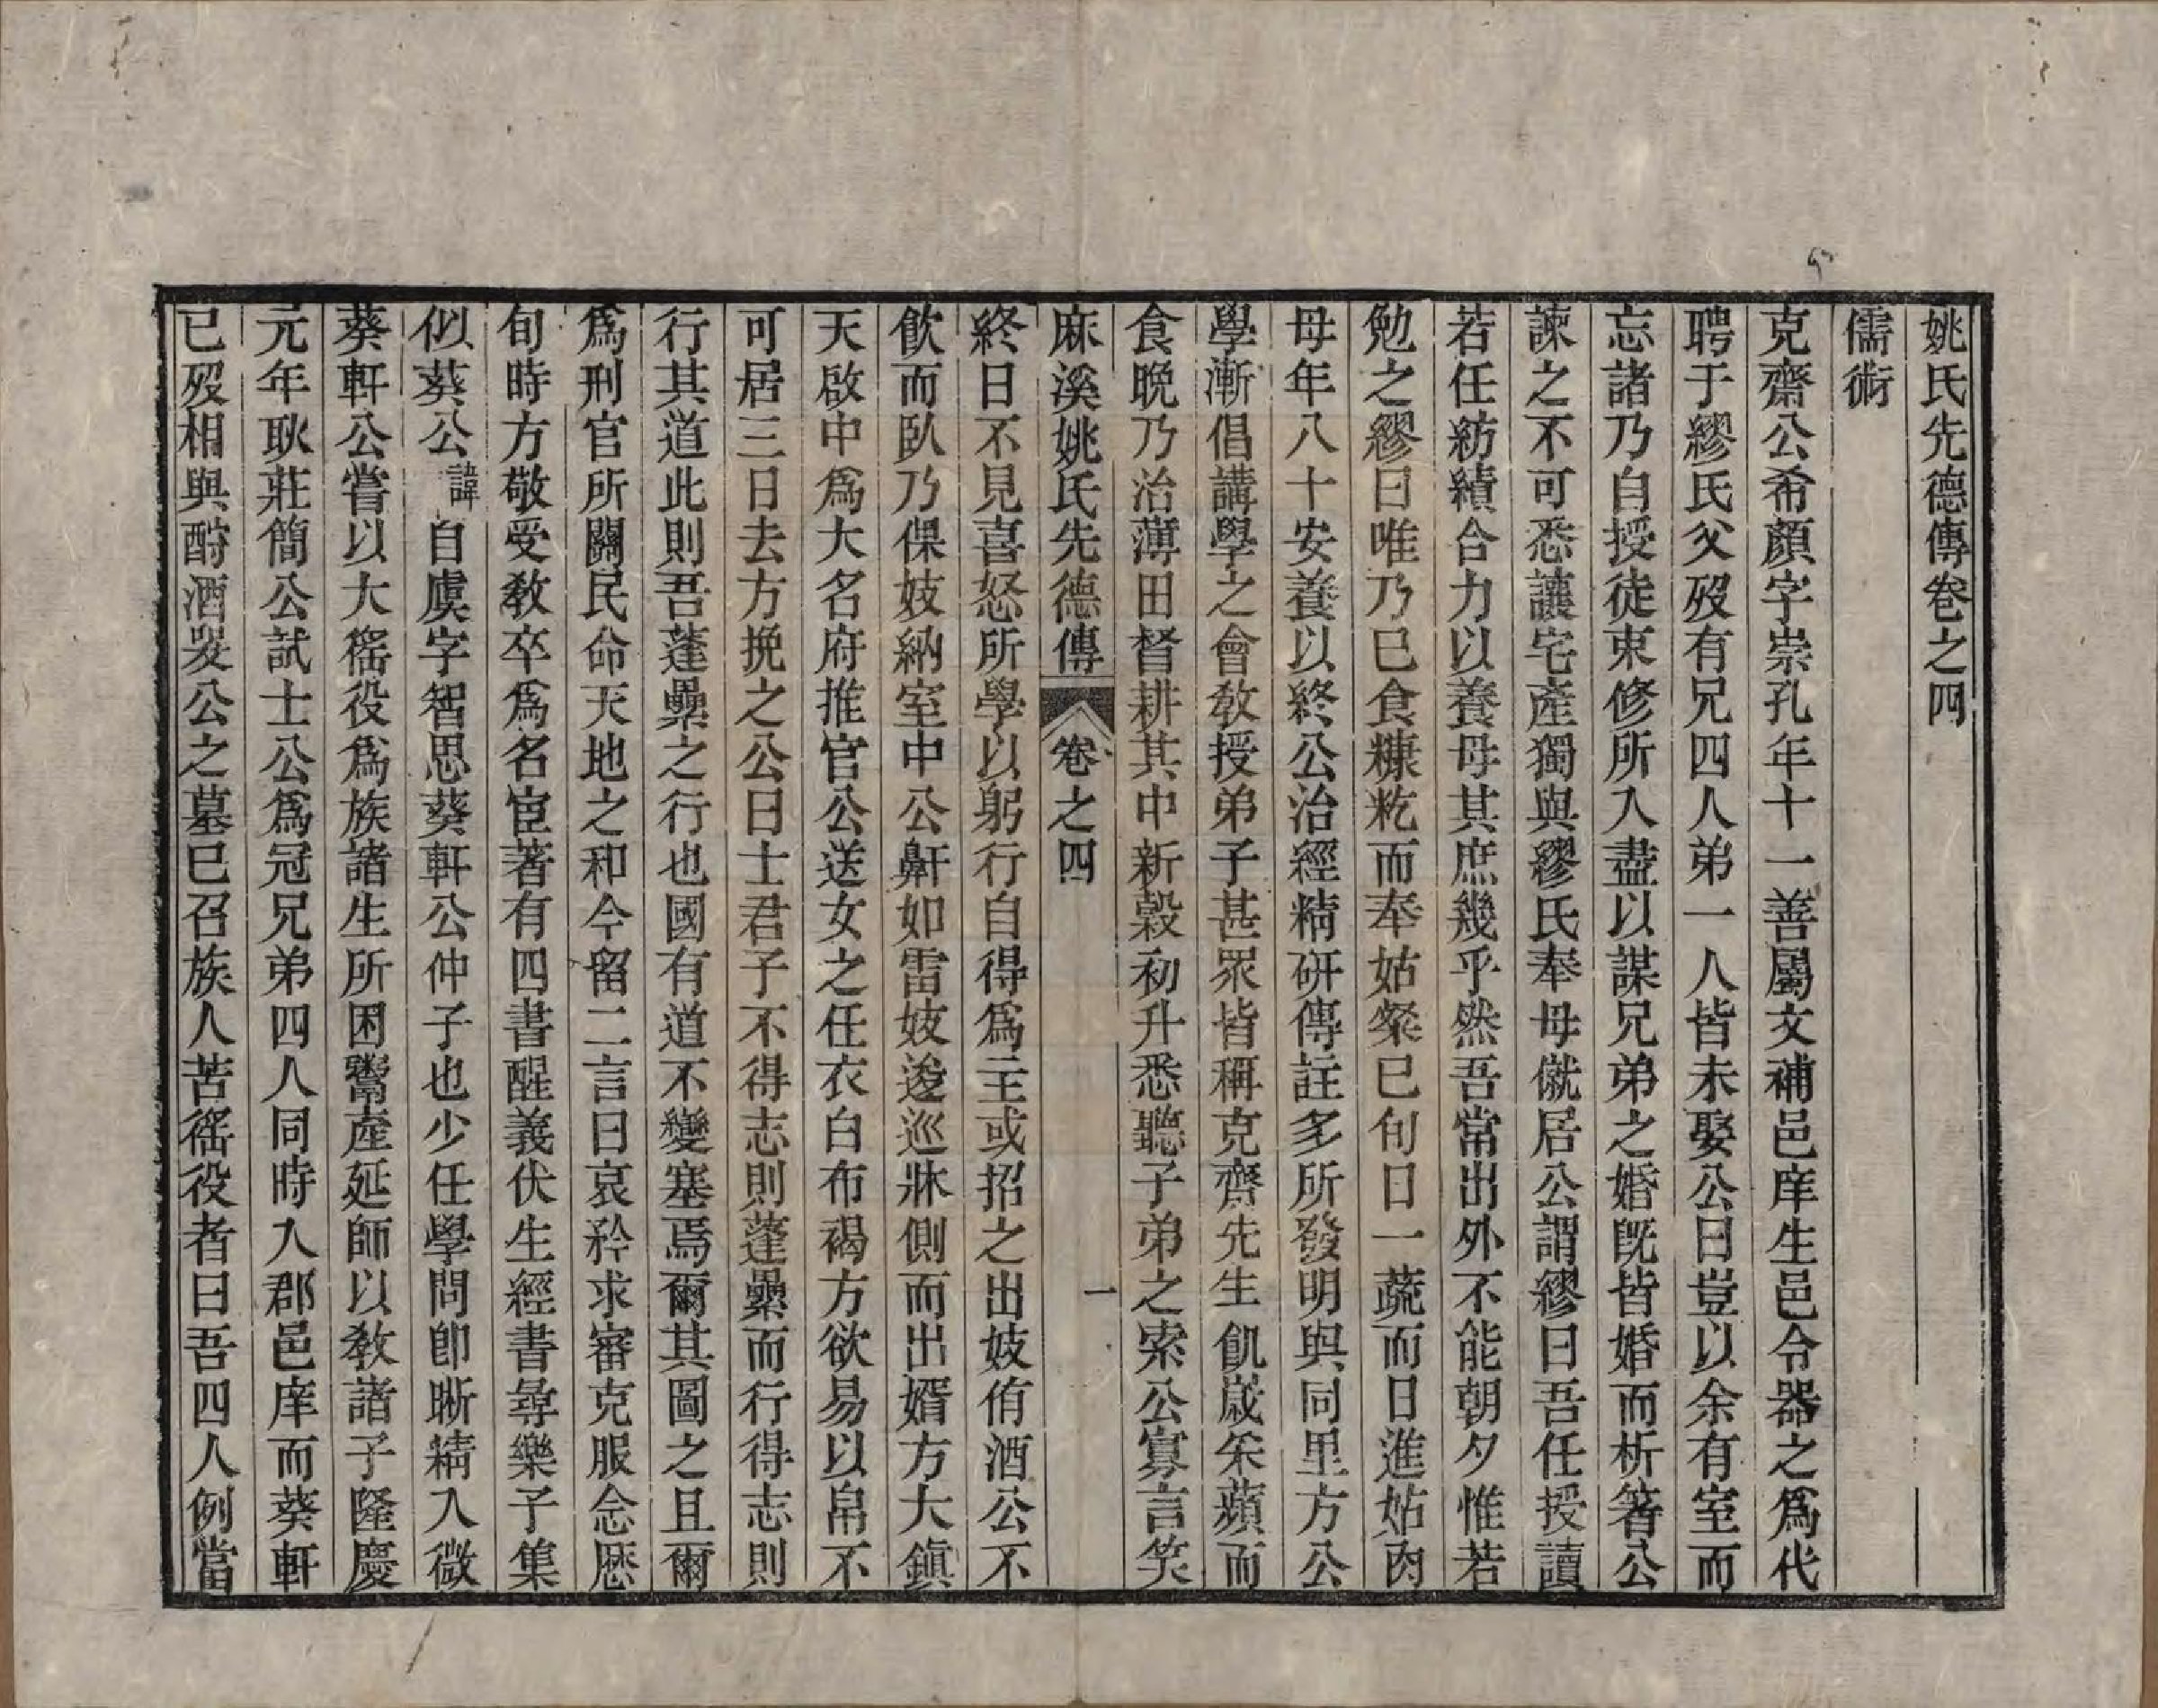 姚氏先德傳卷之四
儒術
克齋公希顏字崇孔年十一善屬文補邑庠生邑令器之爲代
聘于繆氏父歿有兄四人弟一人皆未娶公曰豈以余有室而
忘諸乃自授徒束修所入盡以謀兄弟之婚旣皆婚而析箸公
諫之不可悉讓宅產獨與繆氏奉母僦居公謂繆曰吾任授讀
若任紡績合力以養母其庶幾乎然吾常出外不能朝夕惟若
勉之繆曰唯乃已食糠籺而奉姑粲已旬日一蔬而日進姑肉
母年八十安養以終公治經精研傳註多所發明與同里方公
學漸倡講學之會敎授弟子甚眾皆稱克齋先生飢歲采蘋而
食晚乃治薄田督耕其中新穀初升悉聽子弟之索公寡言笑
麻溪姚氏先德傳 卷之四 一
終日不見喜怒所學以躬行自得爲主或招之出妓侑酒公不
飮而臥乃倮妓納室中公鼾如雷妓逡巡牀側而出婿方大鎭
天啟中爲大名府推官公送女之任衣白布褐方欲易以帛不
可居三日去方挽之公曰士君子不得志則蓬纍而行得志則
行其道此則吾蓬纍之行也國有道不變塞焉爾其圖之且爾
爲刑官所關民命天地之和今留二言曰哀矜求審克服念厯
旬時方敬受敎卒爲名宦著有四書醒義伏生經書尋樂子集
似葵公諱自虞字智思葵軒公仲子也少任學問卽晰精入微
葵軒公嘗以大徭役爲族諸生所困鬻產延師以敎諸子隆慶
元年耿莊簡公試士公爲冠兄弟四人同時入郡邑庠而葵軒
已歿相與酹酒哭公之墓已召族人苦徭役者曰吾四人例當